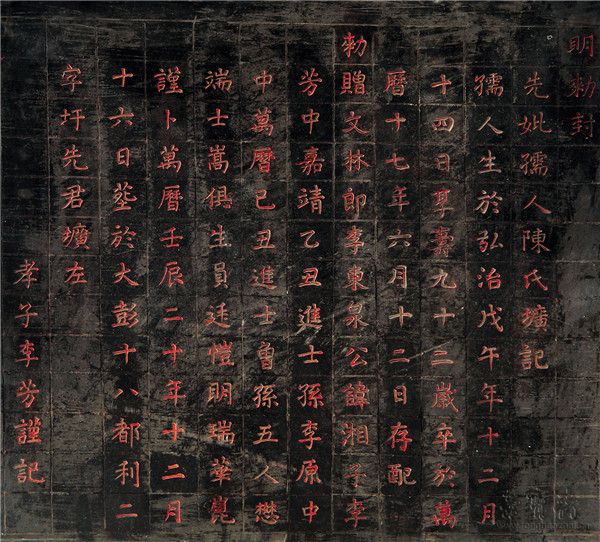 明勑封
先妣孺人陳氏壙記
孺人生於弘治戊午年十二月
十四日享壽九十三歲卒於萬
曆十七年六月十二日存配
勑贈文林郎李東泉公諱湘子李
芳中嘉靖乙丑進士孫李原中
中萬曆己丑進士曾孫五人懋
端士嵩俱生員廷愷明瑞華崑
謹卜萬曆壬辰二十年十二月
十六日塟於大彭十八都利二
字圩先君壙左
孝子李芳謹記